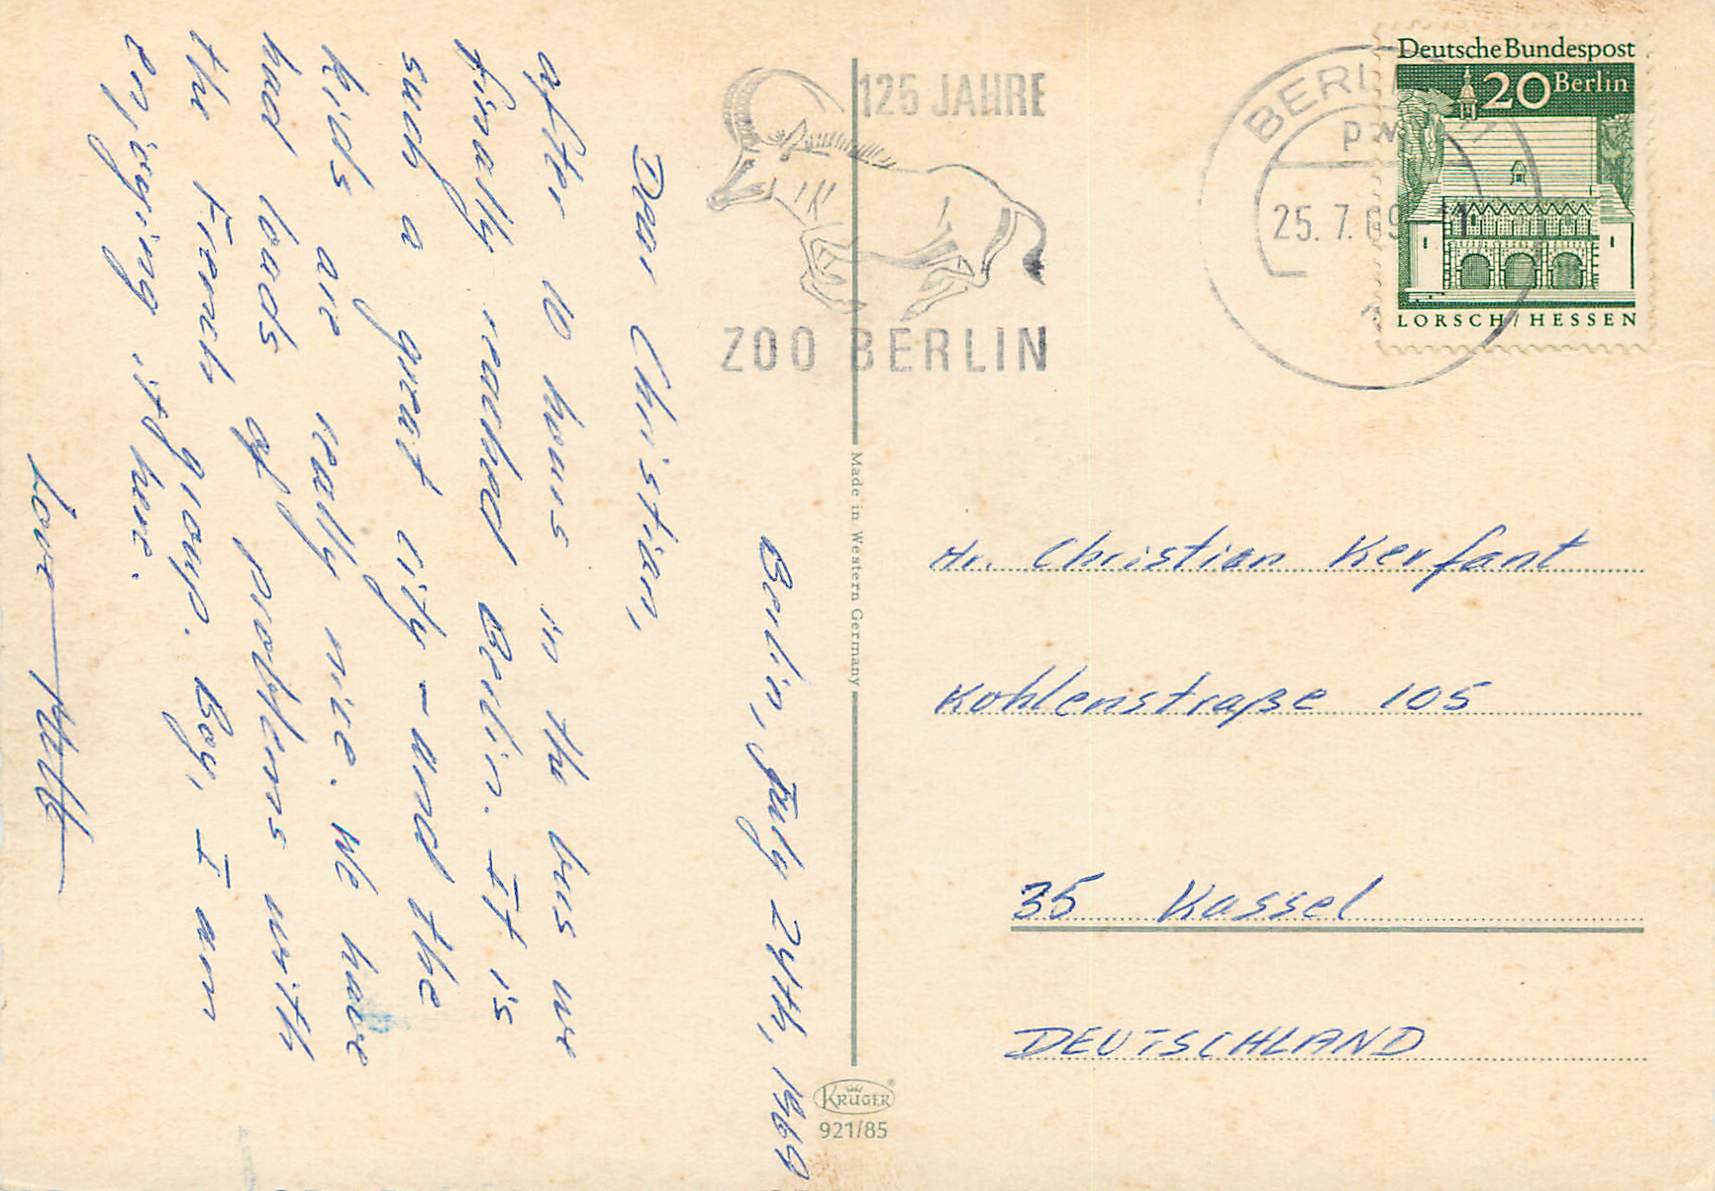 125 JAHRE
ZOO BERLIN
BERLIN 11
25.7.69
Deutsche Bundespost
20 Berlin
LORSCH/HESSEN
Berlin, July 24th, 1969
Dear Christian,
after 10 hours in the bus we
finally reached Berlin. It is
such a great city - and the
kids are really nice. We have
had loads of problems with
the French group. Boy, I am
enjoying it here.
Love
Made in Western Germany
KRÜGER
921/85
Hr. Christian Kerfant
Kohlenstraße 105
35 Kassel
DEUTSCHLAND